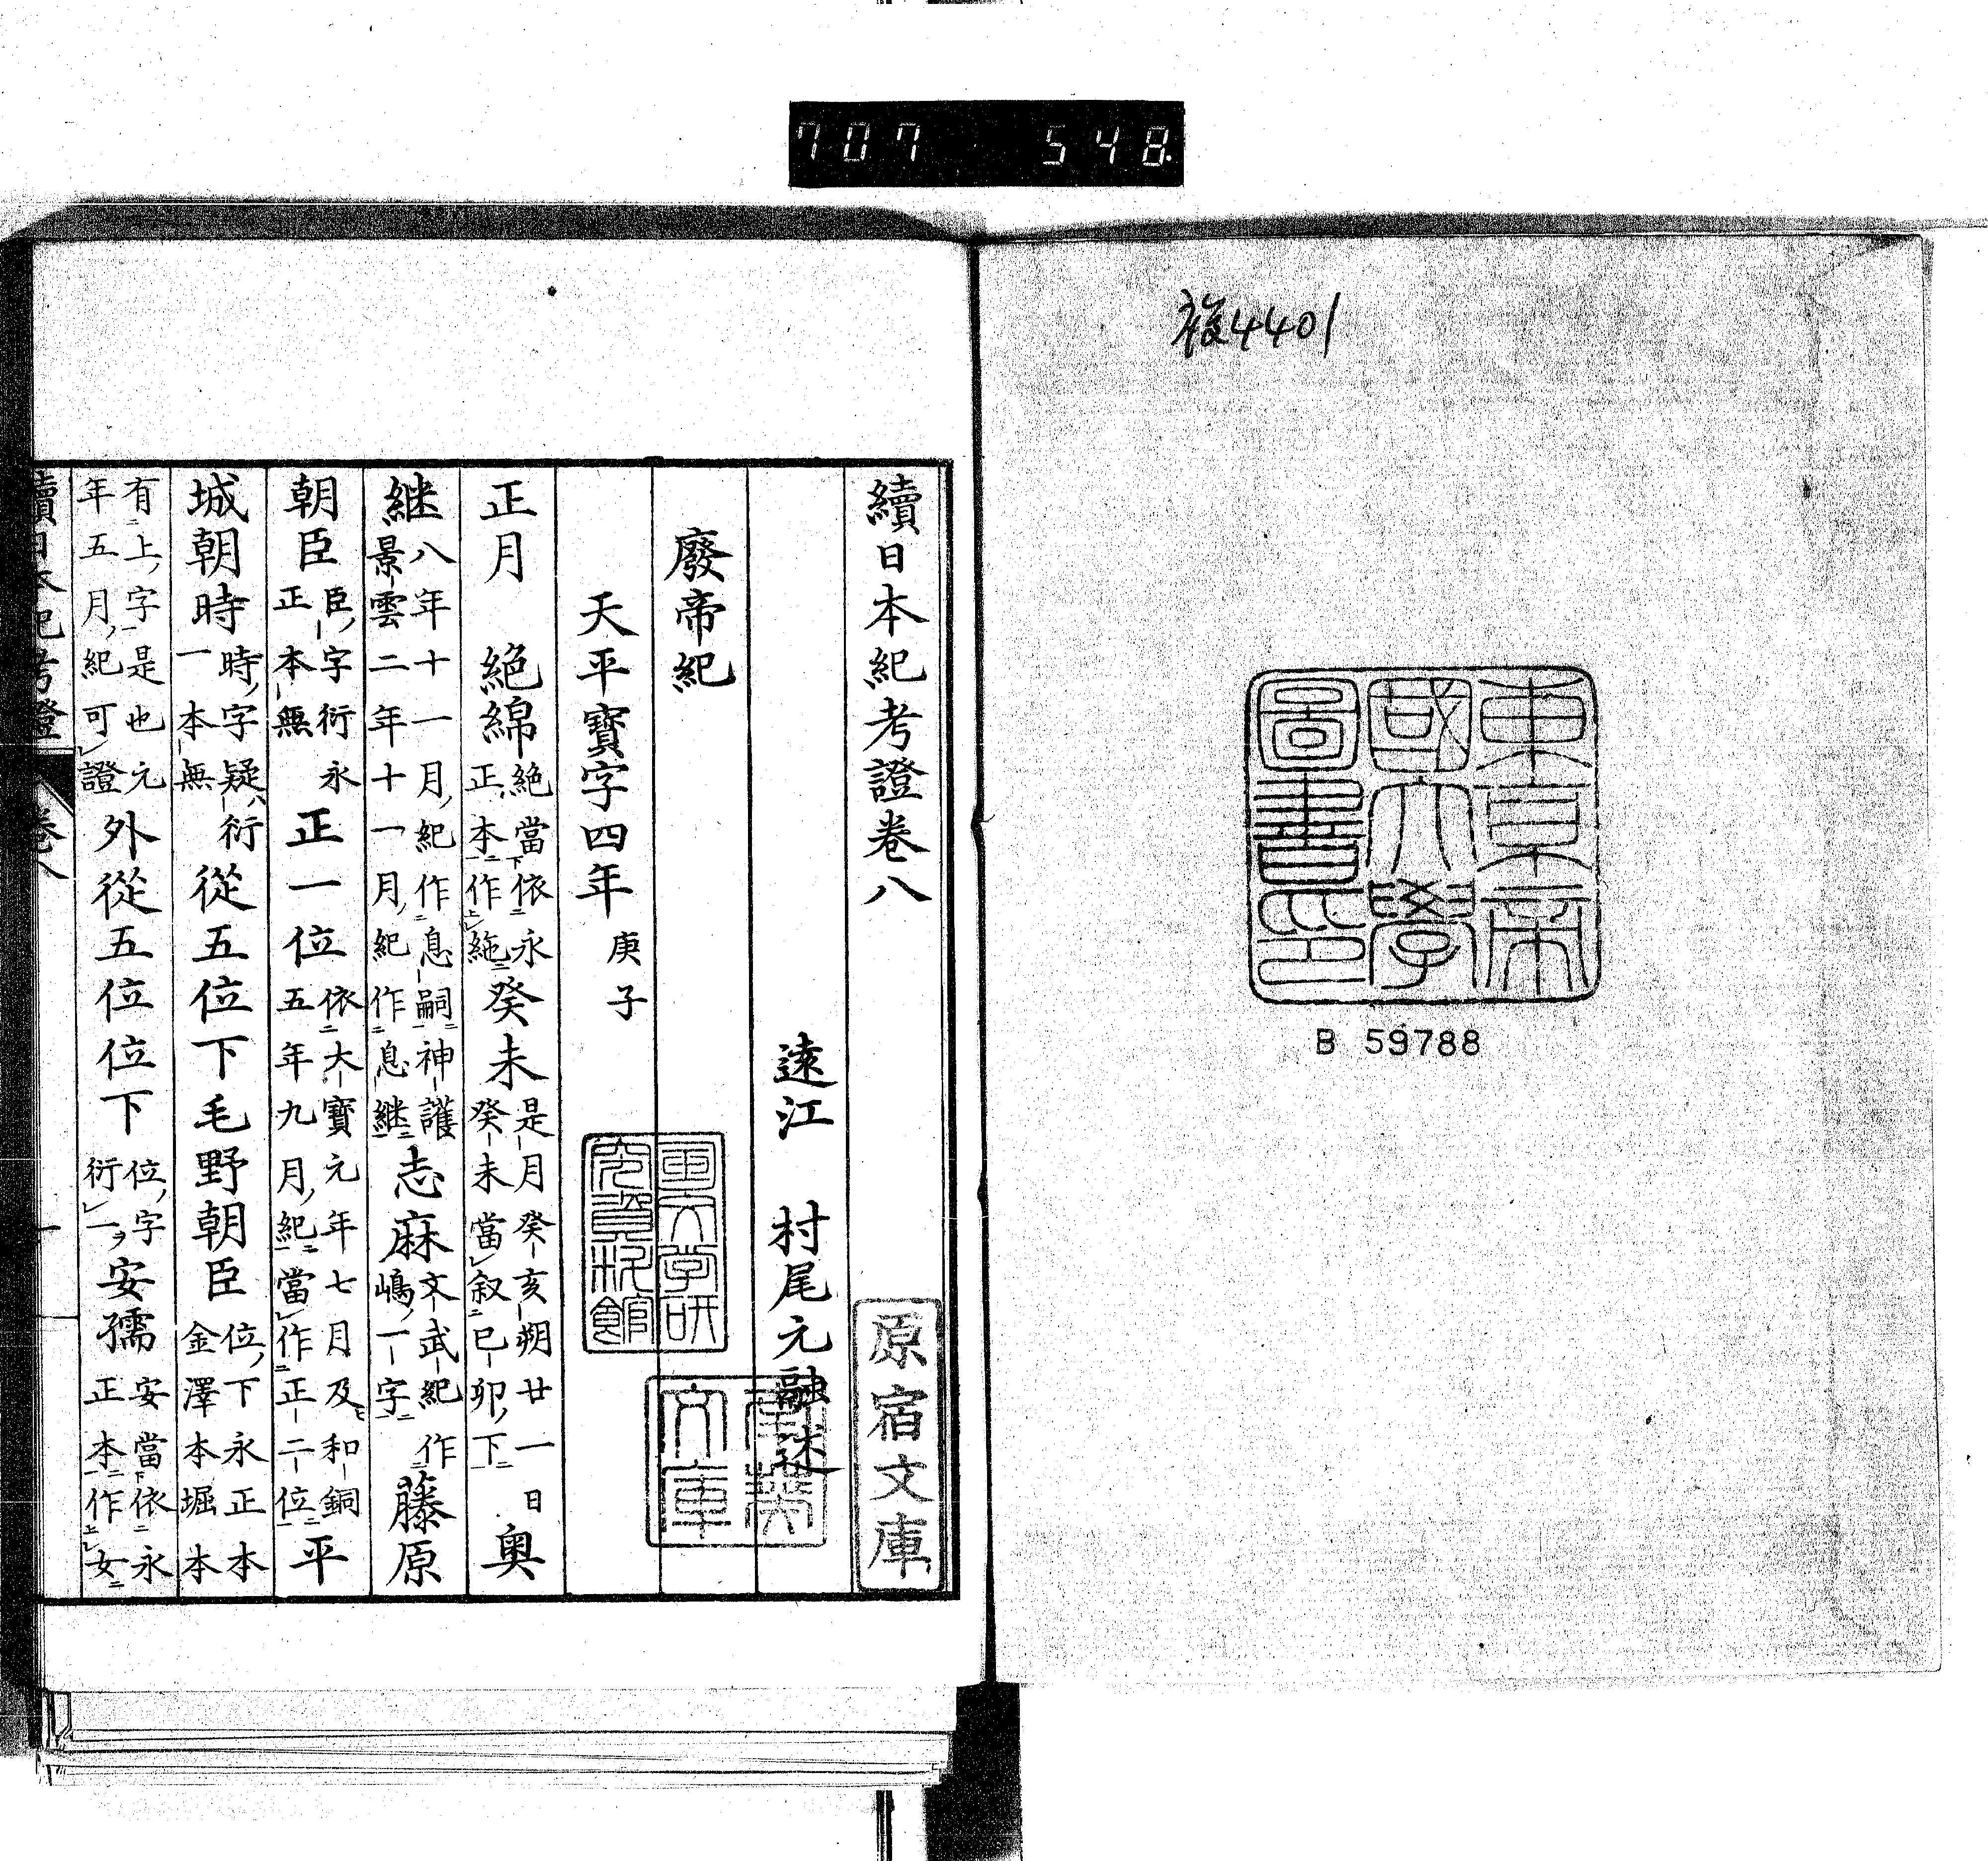 707 548
複4401
東京帝
國大學
圖書印
B 59788
續日本紀考證卷八
原宿文庫
遠江 村尾元融述
廢帝紀
天平寶字四年 庚子
正月 絶綿 絶當依永正本作絁 癸未 是月癸亥朔廿一日癸未當叙己卯下 奥
継 八年十一月紀作息嗣神護景雲二年十一月紀作息継 志麻 文武紀作嶋一字 藤原
朝臣 臣字衍永正本無 正一位 依大寶元年七月及和銅五年九月紀當作正二位 平
城朝時 時字疑衍一本無 從五位下毛野朝臣 位下永正本金澤本堀本
有上字是也元年五月紀可證 外從五位位下 位字衍一 安孺 安當依永正本作女
續日本紀考證 卷八 一